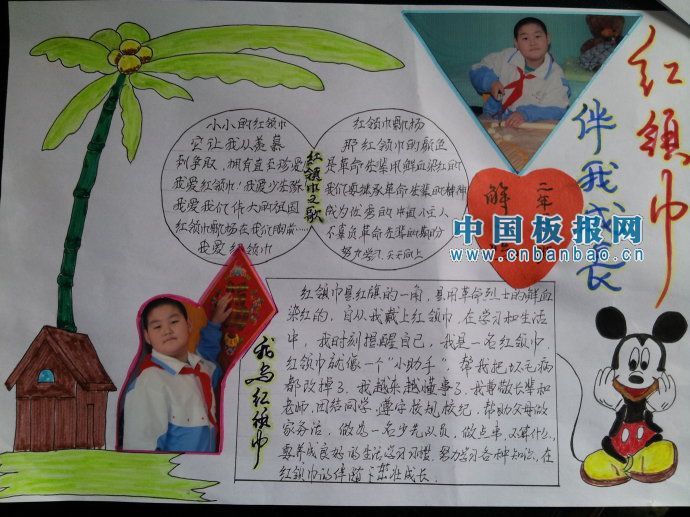 红领巾
伴我成长
小小的红领巾
它让我从羡慕
到争取，拥有直至珍爱
我爱红领巾！我爱少先队
我爱我们伟大的祖国
红领巾飘扬在我们胸前……
我爱红领巾
红领巾之歌
红领巾飘扬
那红领巾的颜色
是革命先辈用鲜血染红的
我们要继承革命先辈的精神
成为优秀的中国小主人
不辜负革命先辈的期望
努力学习，天天向上
二年
解
中国板报网
www.cnbanbao.cn
我与红领巾
红领巾是红旗的一角，是用革命烈士的鲜血
染红的，自从我戴上红领巾，在学习和生活
中，我时刻提醒自己，我是一名红领巾
红领巾就像一个“小助手”，帮我把坏毛病
都改掉了。我越来越懂事了。我尊敬长辈和
老师，团结同学，遵守校规校纪，帮助父母做
家务活，做为一名少先队员，做点事，不算什么，
要养成良好的生活学习习惯，努力学习各种知识，在
红领巾的伴随下茁壮成长。